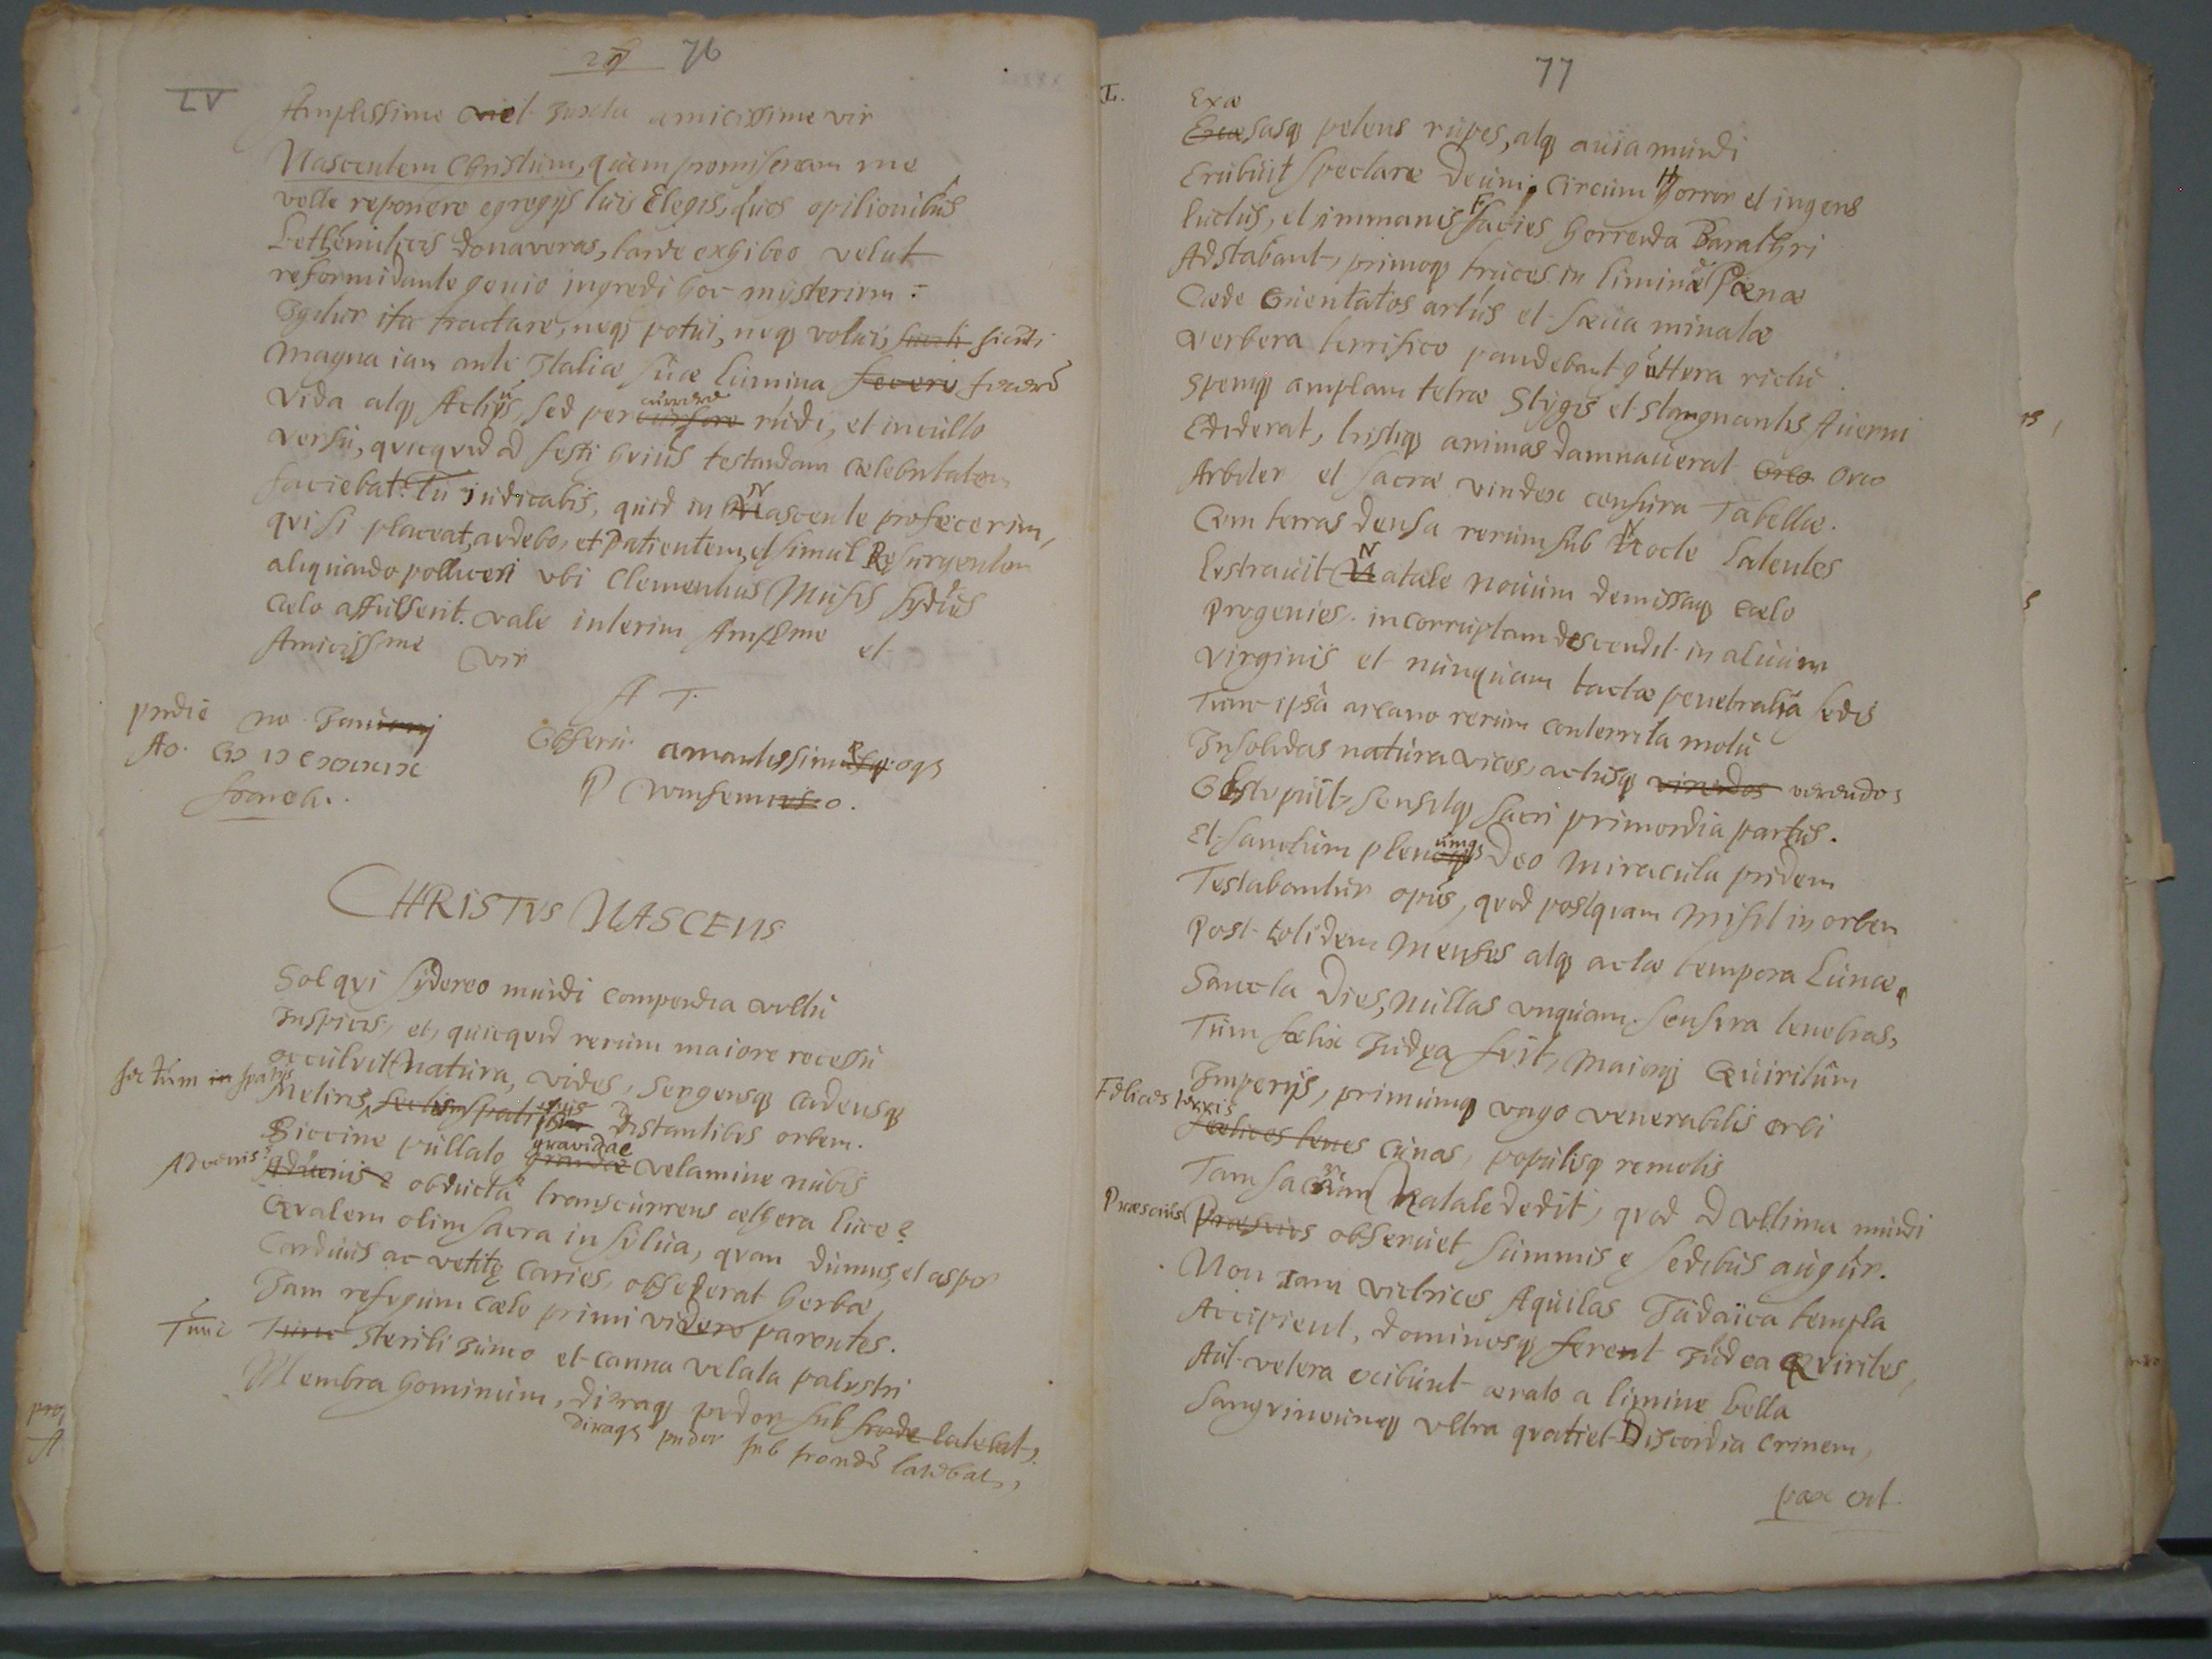 76
LV
Amplissime juxta amicissime vir
Nascentem Christum, quem promiseram me
velle reponere egregijs tuis Elegis, quos opilionibus
Bethemiticis donaveras, tarde exhibeo velut
reformidante genio ingredi hoc mysterium:
Igitur ita tractare, neq potui, neq volui, sicuti
magna iam ante Italiæ suæ lumina fecere
Vida atq Actius, sed percurrere rudi, et incullo
versu, quicquid ad festi huius testandam celebritatem
faciebat: Tu judicabis, quid in Nascente profecerim,
qui si placeat, audebo, et Patientem, et simul Resurgentem
aliquando polliceri ubi clementius Musis sydus
cælo affulserit. Vale interim Amplme et
Amicissme vir
A T.
pridie no. Januarij
Ao. CIƆ IƆ CXXXIX
franek.
Observ. amantissimusq
P Winsemius
CHRISTVS NASCENS
Sol qvi sydereo mundi compendia vultu
Inspicis, et, quicqvid rerum maiore recessu
occuluit natura, vides, sergensq cadensq
sectum in spatijs
Metiris, distantibus orbem.
Siccine pullato gravidæ velamine nubis
Advenis? obductâ transcurrens æthera luce?
Qvalem olim sacra in sylua, qvam dumus, et asper
Carduus ac vetitę caries, obsederat herbæ,
Jam refugum cælo primi videre parentes.
Tunc Tunc sterili junco et canna velata palustri
Membra hominum, diraq pudor sub fronde latebat,
diraqs pudor sub fronde latebat,
77
L.
Exæ
Exæsasq petens rupes, atq avia mundi
Erubuit spectare Deum. Circum Horror et ingens
luctus, et immanis Facies horrenda Barathri
Adstabant, primoq truces in limine Pœnæ
Cæde cruentatos artus et sæva minatæ
Verbera terrifico pandebant guttura rictu.
Spemq amplam tetræ Stygis et stangnantis Averni
Ediderat, tristiq animas damnaverat Orco Orco
Arbiter et sacræ vindex censura Tabellæ.
Cum terras densa rerum sub Nocte latentes
Lustravit Natale novum demissaq cælo
Progenies. incorruptam descendit in alvum
Virginis et nunquam tactæ penetralia sedis
Tunc ipsâ arcano rerum conterrita motu
Insolidas natura vices, actusq verendos
Obstupuit, sensitq sacri primordia partus.
Et sanctum plenumqs Deo miracula pridem
Testabantur opus, quod postquam misit in orbem
Post totidem menses atq actæ tempora Lunæ,
Sancta Dies, nullas unquam sensura tenebras,
Tum fœlix Judęa fvit, maiorq Qviritum
Imperijs, primumq vago venerabilis orbi
Felices terris
cunas, populisq remotis
Tam sacrum Natale dedit, qvod ad ultima mundi
Præscius Præscius observet summis ę sedibus augur.
Non iam victrices Aquilas Judaïca templa
Accipient, dominosq ferent Judea Qvirites,
Aut vetera exibunt ærato a limine bella
Sangvineumq ultra qvatiet Discordia crinem,
pax erit.